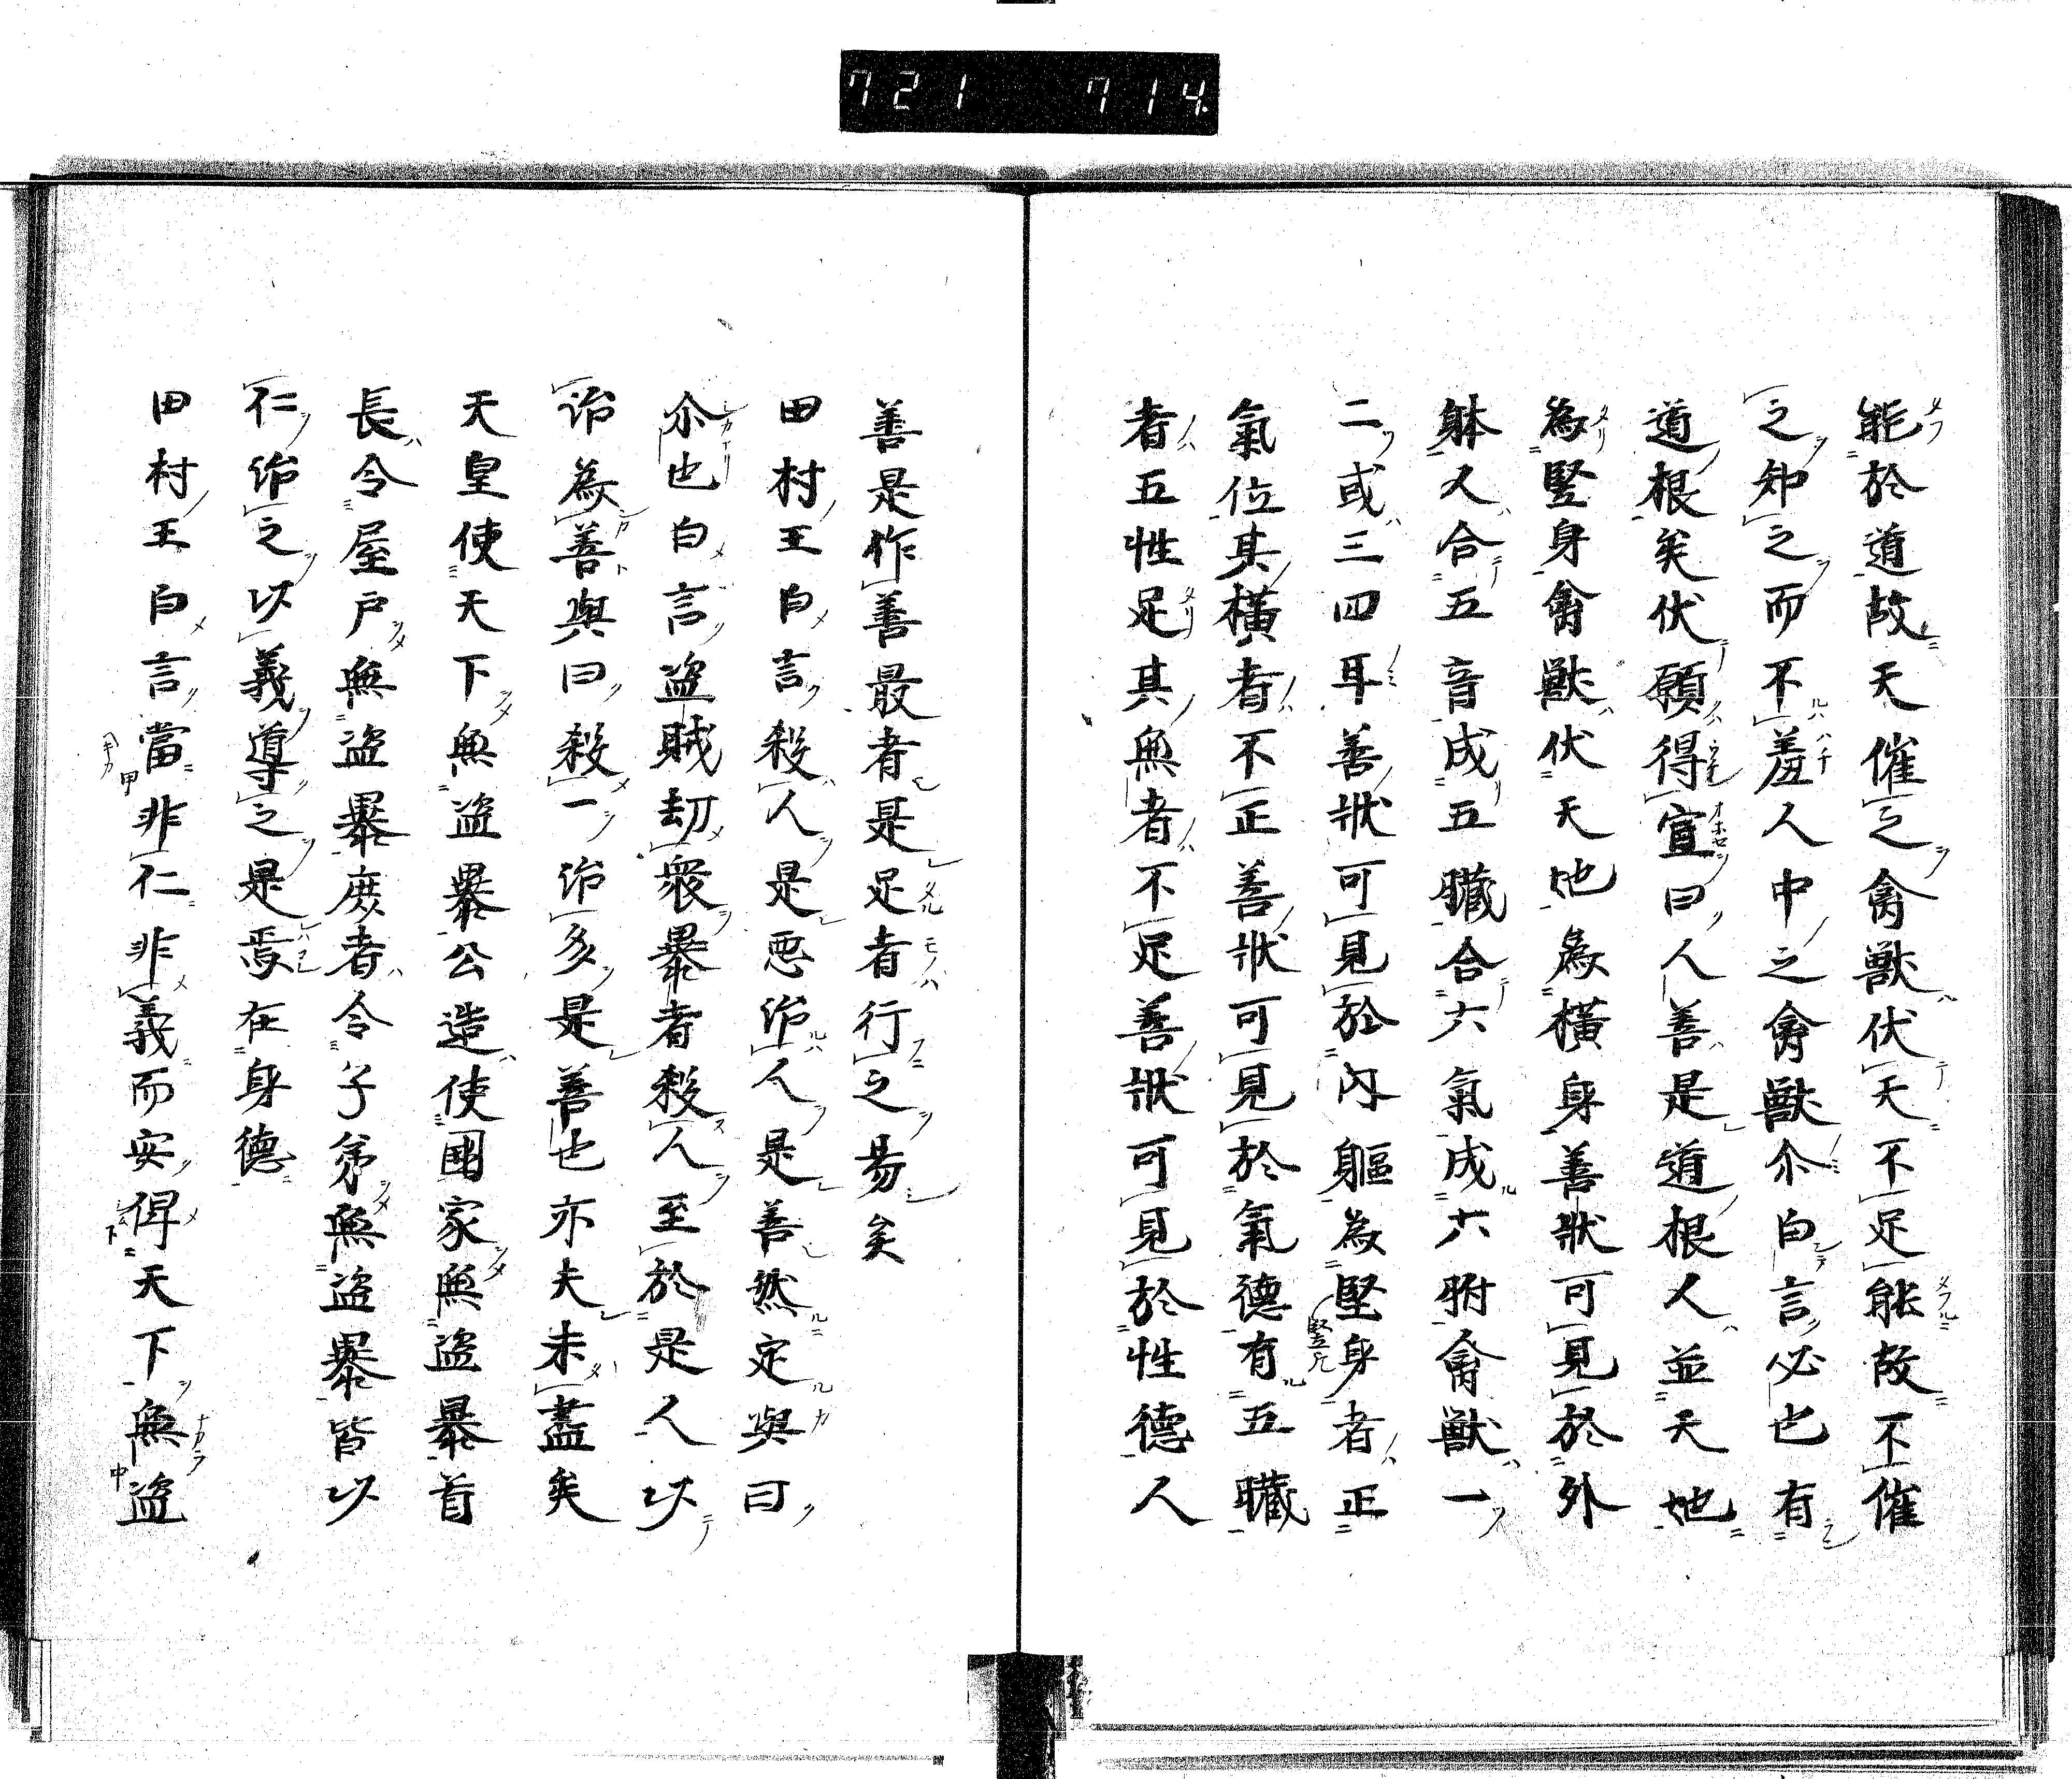 721 714
能於道故天催之禽獸伏天不足能故不催
之知之而不羞人中之禽獸尒白言必也有
道根矣伏願得宣曰人善是道根人並天地
為竪身禽獸伏天地為橫身善狀可見於外
躰人合五音成五臓合六氣成六腑禽獸一
二或三四耳善狀可見於內軀為堅身者正
氣位其橫者不正善狀可見於氣德有五臓
者五性足其無者不足善狀可見於性德人
善是作善最者是足者行之易矣
田村王白言殺人是惡治人是善然定與曰
尒也白言盜賊劫衆暴者殺人至於是人以
治為善與曰殺一治多是善也亦夫未盡矣
天皇使天下無盜暴公造使國家無盜暴首
長令屋戶無盜暴庶者令子弟無盜暴皆以
仁治之以義導之是焉在身德
田村王白言當非仁非義而安俾天下無盜